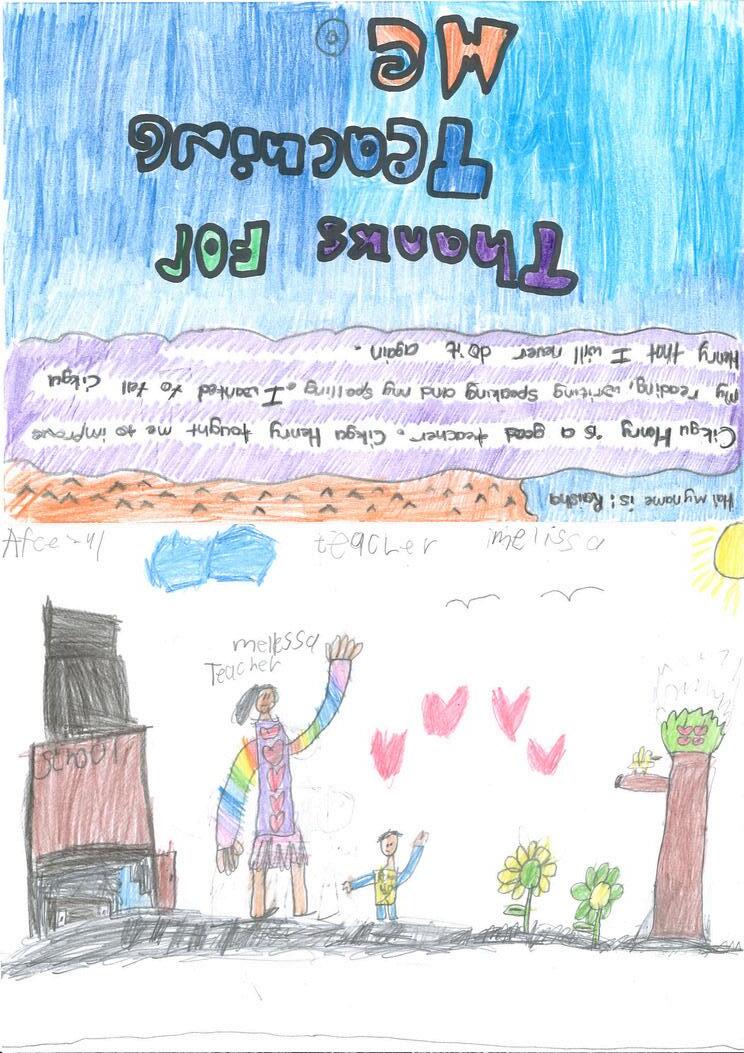 Thanks for
Teaching
Me
Hai my name is: Raisha
Cikgu Henry is a good teacher. Cikgu Henry taught me to improve
my reading, writing, speaking and my spelling. I wanted to tell Cikgu
Henry that I will never do it again.
teacher melissa
melessa
Teacher
School